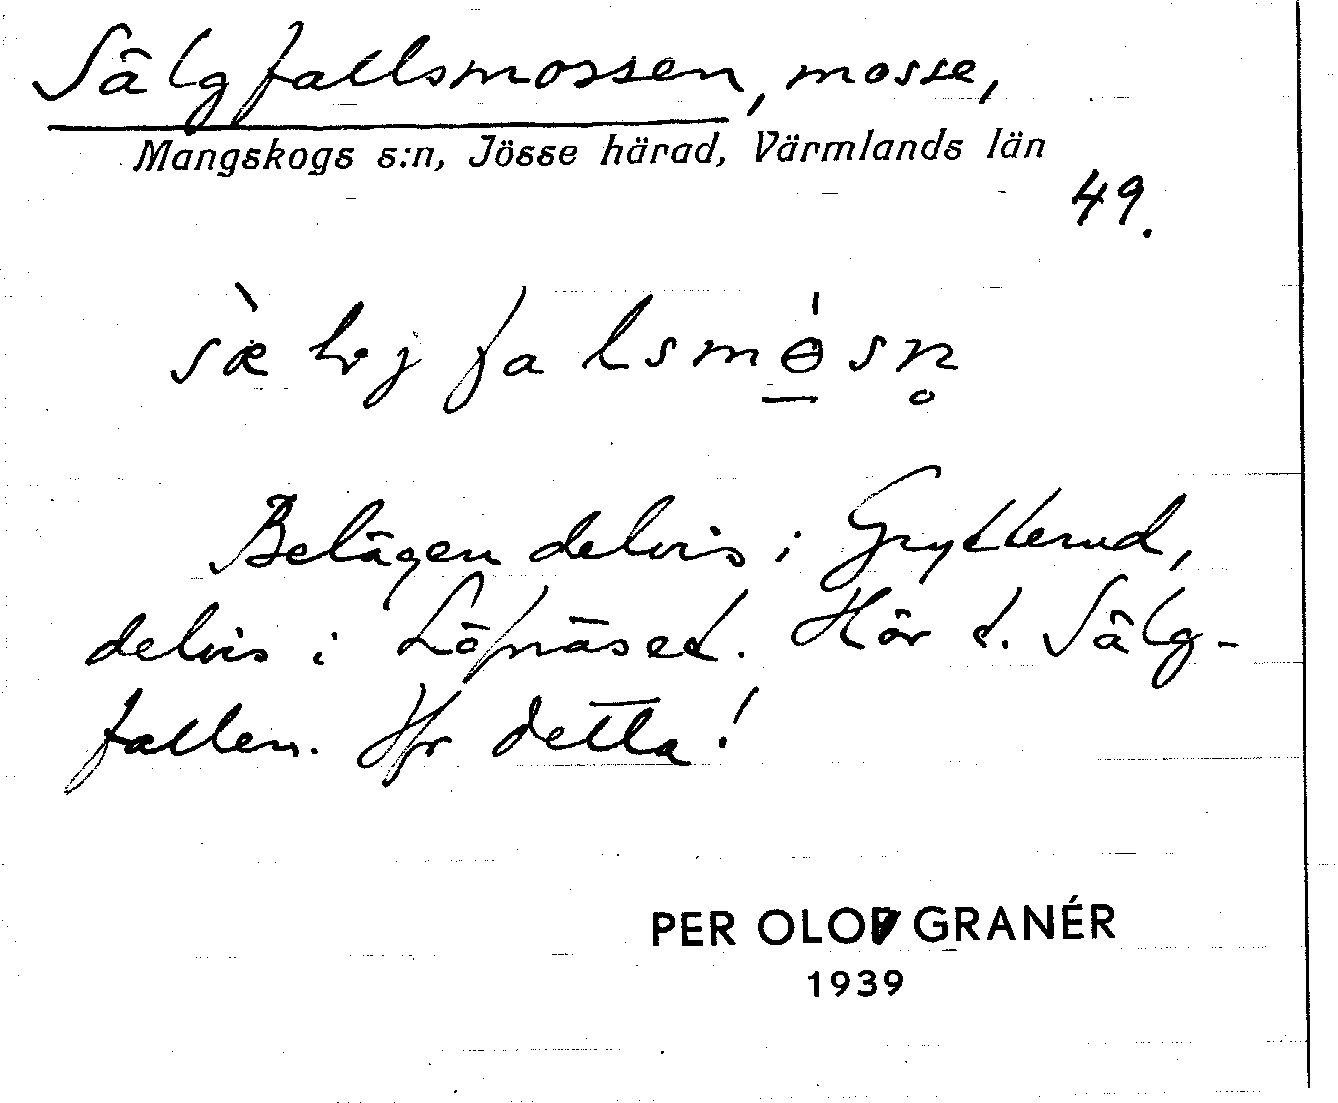 Sälgfallsmossen, mosse,
Mangskogs s:n, Jösse härad, Värmlands län
49.
Belägen delvis i Grytterud,
delvis i Löfnäset. Hör t. Sälg-
fallen. Hfr detta!
PER OLOV GRANÉR
1939